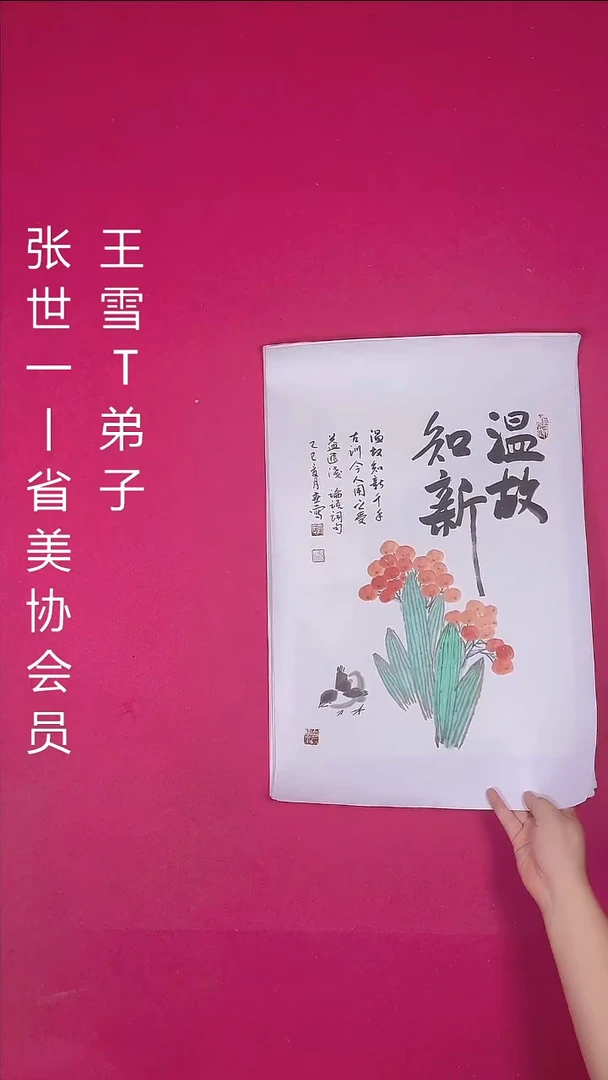 王雪T弟子
张世一|省美协会员
温故
知新
温故知新千年
古训今人用心爱
益匪浅 论语词句